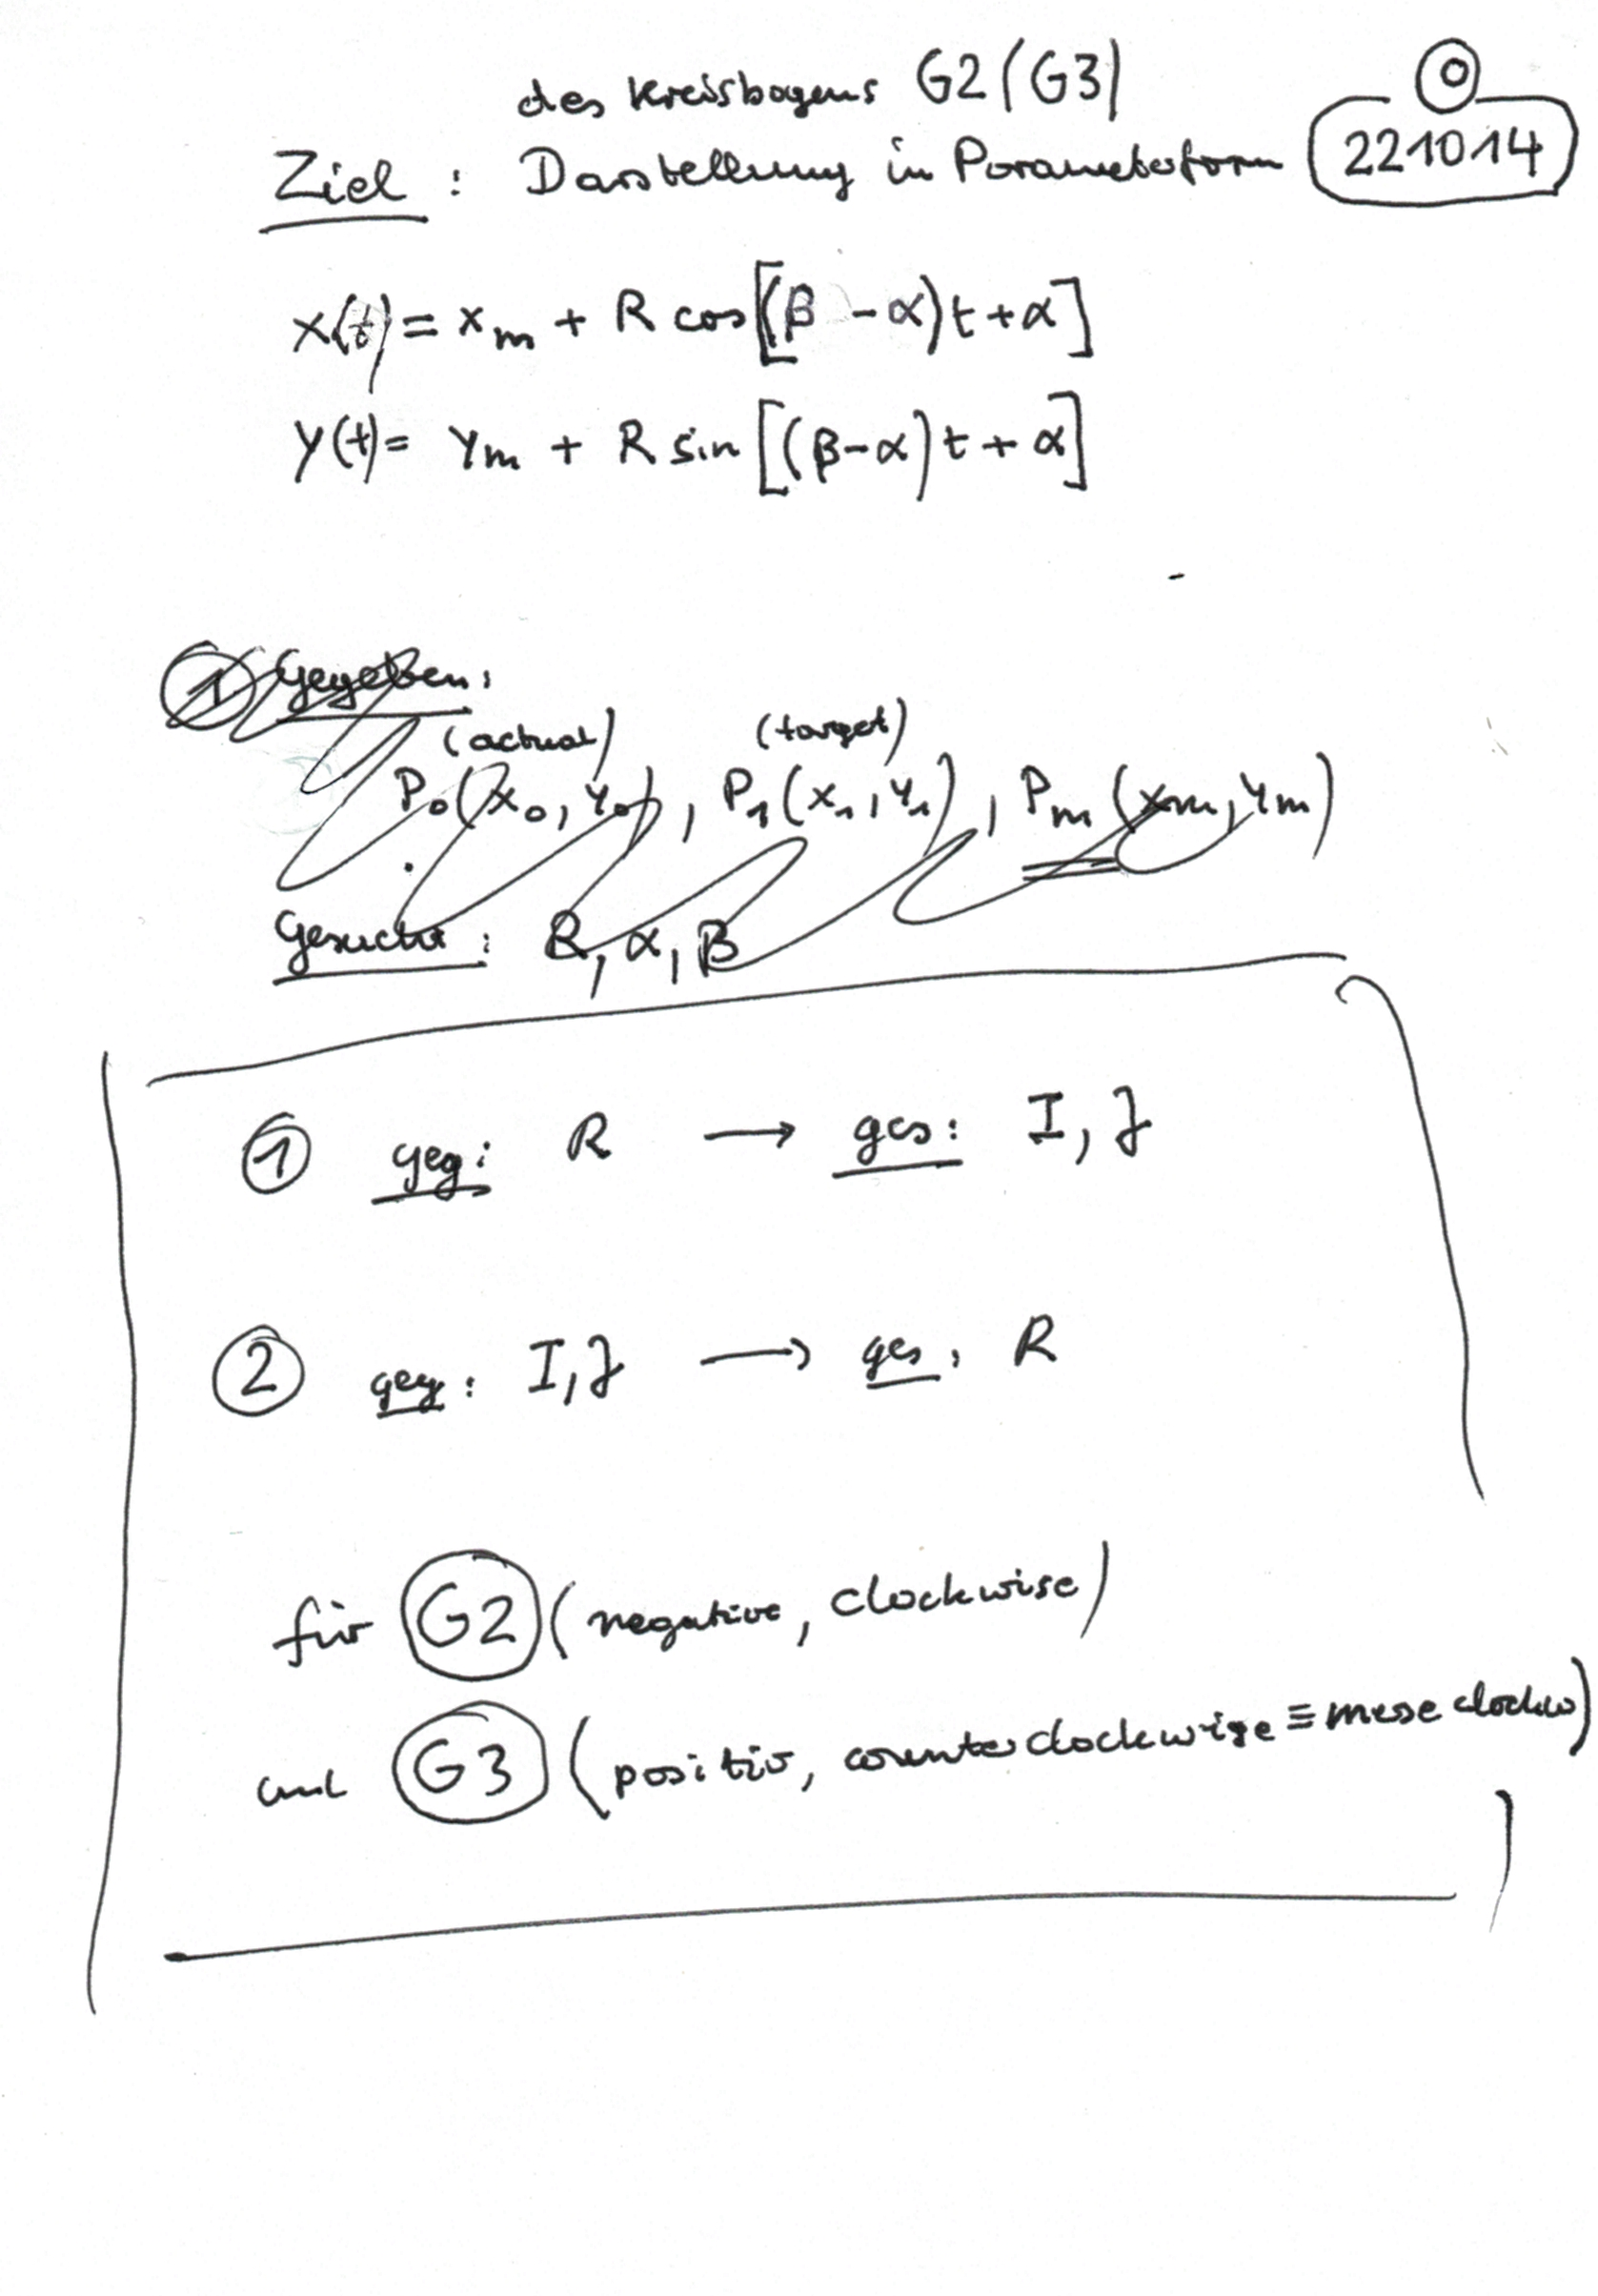 des Kreisbogens G2 (G3)
0
Ziel : Darstellung in Parameterform
221014
x(t) = xm + R cos[(β - α)t + α]
y(t) = ym + R sin [(β-α)t + α]
① Gegeben:
(actual) (target)
P0(x0, y0), P1(x1, y1), Pm (xm, ym)
Gesucht : R, α, β
① geg: R → ges: I, J
② geg: I, J → ges: R
für G2 (negative, clockwise)
und G3 (positiv, counterclockwise ≡